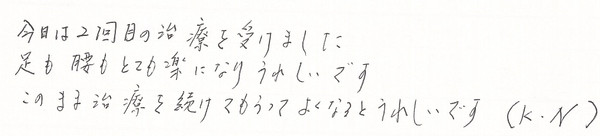 今日は2回目の治療を受けました
足も腰もとても楽になりうれしいです
このまま治療を続けてもらってよくなるとうれしいです (K.N)